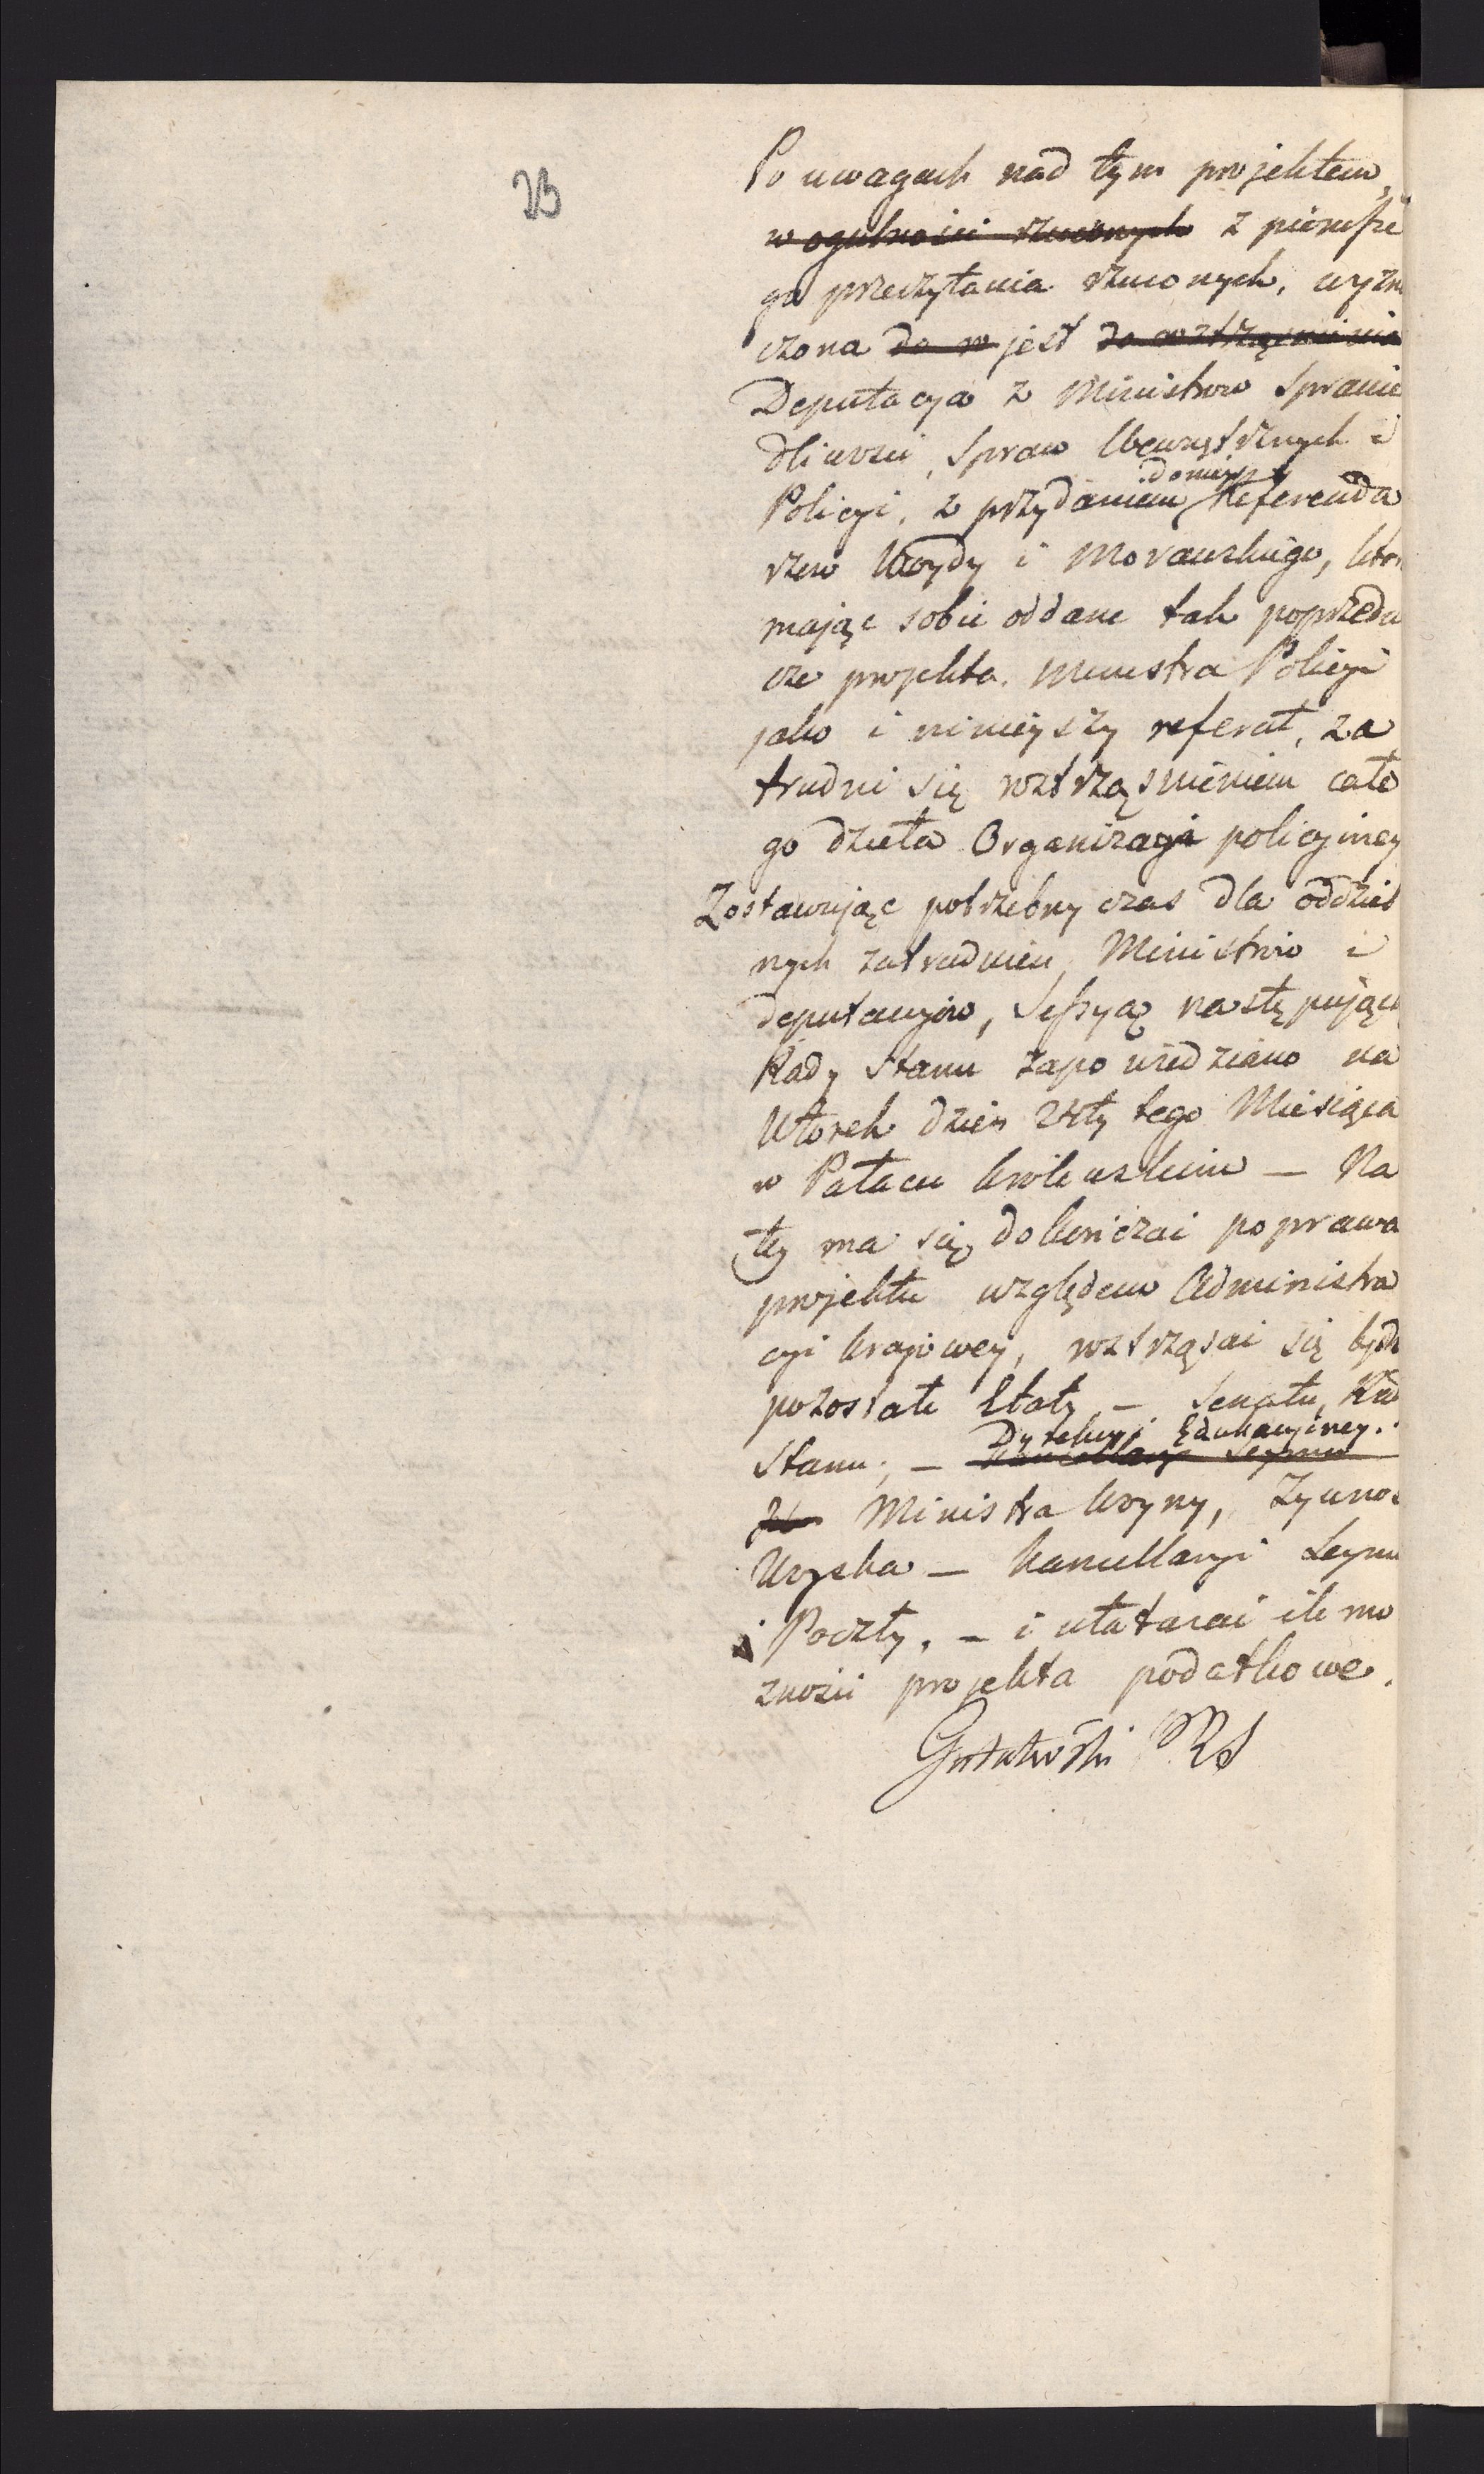 23
Po uwagach nad tym projektem,
w ogulności rzuconych z pierwsze
go przeczytania rzuconych, wyzna
czona do w jest do roztrząśnienia
Deputacya z Ministrów Sprawie
dliwości, Spraw Wewnętrznych i
do niey
Policyi, z przydaniem Referenda
rzow Woydy i Morawskiego, ktor
mając sobie oddane tak poprzedni
cze projekta Ministra Policyi
jako i ninieyszy referat, za
trudni się roztrząśnieniem całe
go dzieła Organizacyi policyiney
Zostawując potrzebny czas dla oddziel
nych zatrudnień Ministrów i
deputacyiow, Sessyą następującą
Rady Stanu zapowiedziano na
Wtorek dzień tego Miesiąca
w Pałacu Krolewskim — Na
tey ma się dokończać poprawa
projektu względem Administra
cyi krajowey, roztrząsać się będą
pozostałe Etaty — Senatu, Rad
Dyrekcyi Edukacyiney.
Stanu, — Kancellaryi Seymu
Ministra Woyny, Żywnoś
Woyska — Kancellaryi Seymu
i Poczty, — i ułatwiać ile mo
żności projekta podatkowe.
Grabowski RS